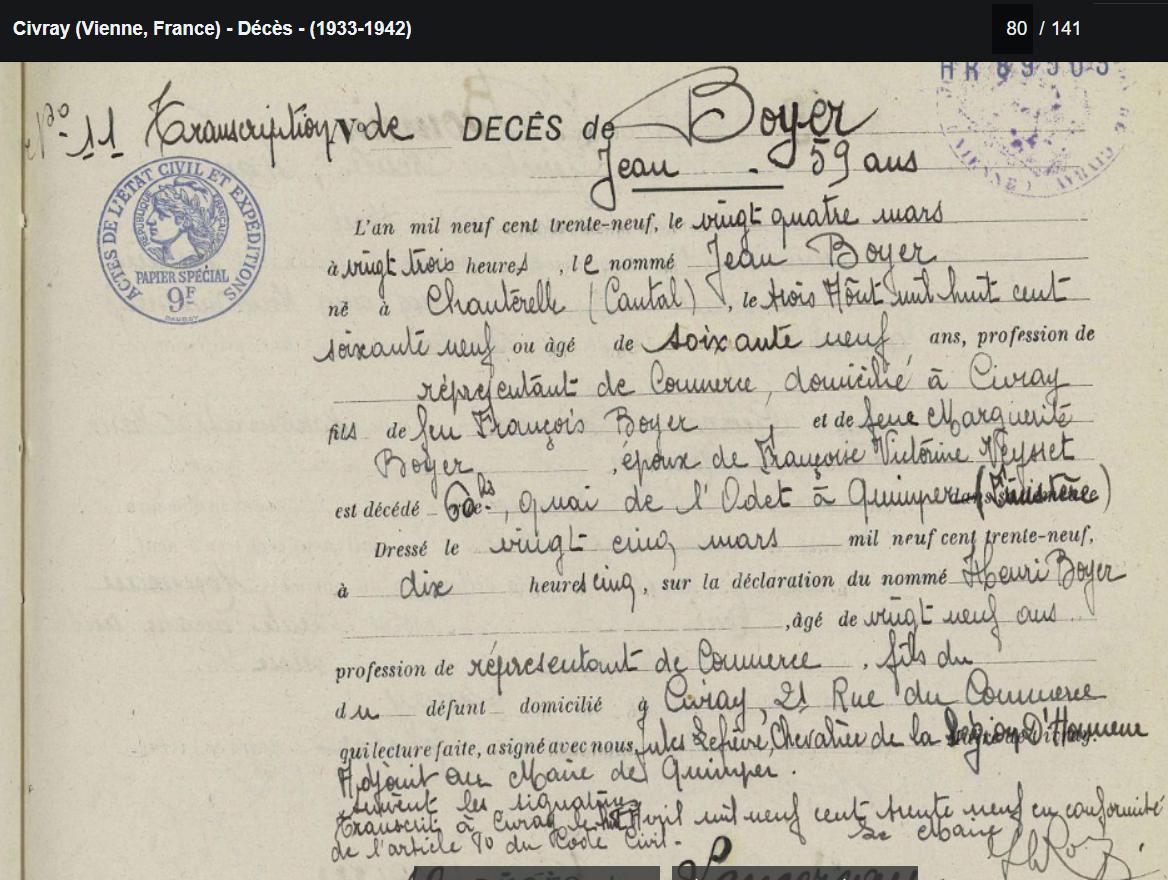 Civray (Vienne, France) - Décès - (1933-1942)
80 / 141
HR 89505
N° 11 Transcription de DECÈS de Boyer
Jean - 59 ans
ACTES DE L'ÉTAT CIVIL ET EXPÉDITIONS
RÉPUBLIQUE FRANÇAISE
PAPIER SPÉCIAL
9F
L'an mil neuf cent trente-neuf, le vingt quatre mars
à vingt trois heures, le nommé Jean Boyer
né à Chanterelle (Cantal), le trois Août mil huit cent
soixante neuf ou âgé de soixante neuf ans, profession de
réprésentant de Commerce, domicilié à Civray
fils de feu François Boyer et de feue Marguerite
Boyer, époux de Françoise Victorine Veysset
est décédé 6 de bis, quai de l'Odet à Quimper (Finistère)
Dressé le vingt cinq mars mil neuf cent trente-neuf,
à dix heures cinq, sur la déclaration du nommé Henri Boyer
, âgé de vingt neuf ans
profession de réprésentant de Commerce, fils du
du défunt domicilié à Civray, 21 Rue du Commerce
qui lecture faite, a signé avec nous, Jules Lefèvre, Chevalier de la Légion D'Honneur
Adjoint au Maire de Quimper.
suivent les signatures
Transcrit à Civray le Avril mil neuf cent trente neuf en conformité
de l'article 80 du Code Civil. - Le Maire
DÉCÈS